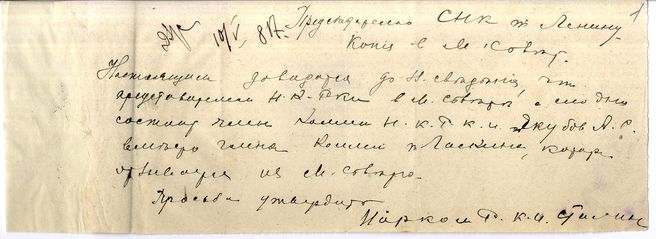 1
10/V
Председателю СНК т Ленину
Копия в М. Совнар.
Настоящим доводится до В. сведения, что
представителем Н. К. Р.к.и в М. Совнарк. с сего дня
состоит член коллегии Н. К. Р. К. И. т Якубов А. С.
вместо члена Коллегии т Ласкина, котор
отзывается из М. Совнарк.
Просьба утвердить
Нарком Р. К. И. Сталин